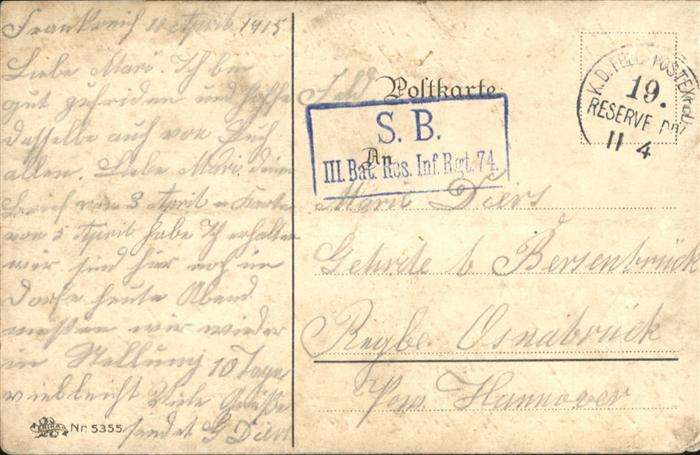 Frankreich 11 April 1915
Liebe Mari. Ich bin
gut zufriden und hoffe
dasselbe auch von Euch
allen. Liebe Mari deinen
Brief von 3 April u Karte
von 5 April habe Ich erhalten
wir sind hir noch im
Dorfe heute Abend
müßen wir wieder
in Stellung 10 Tage
vielleicht Viele Grüße
sendet G Diers
Nr. 5355
Feld Postkarte
S. B.
III. Bat. Res. Inf. Rgt. 74.
An
Marie Diers
Gehrde b Bersenbrück
Regbz. Osnabrück
Prov Hannover
K. D. FELD POSTEXPED.
19.
RESERVE DIV.
11 4